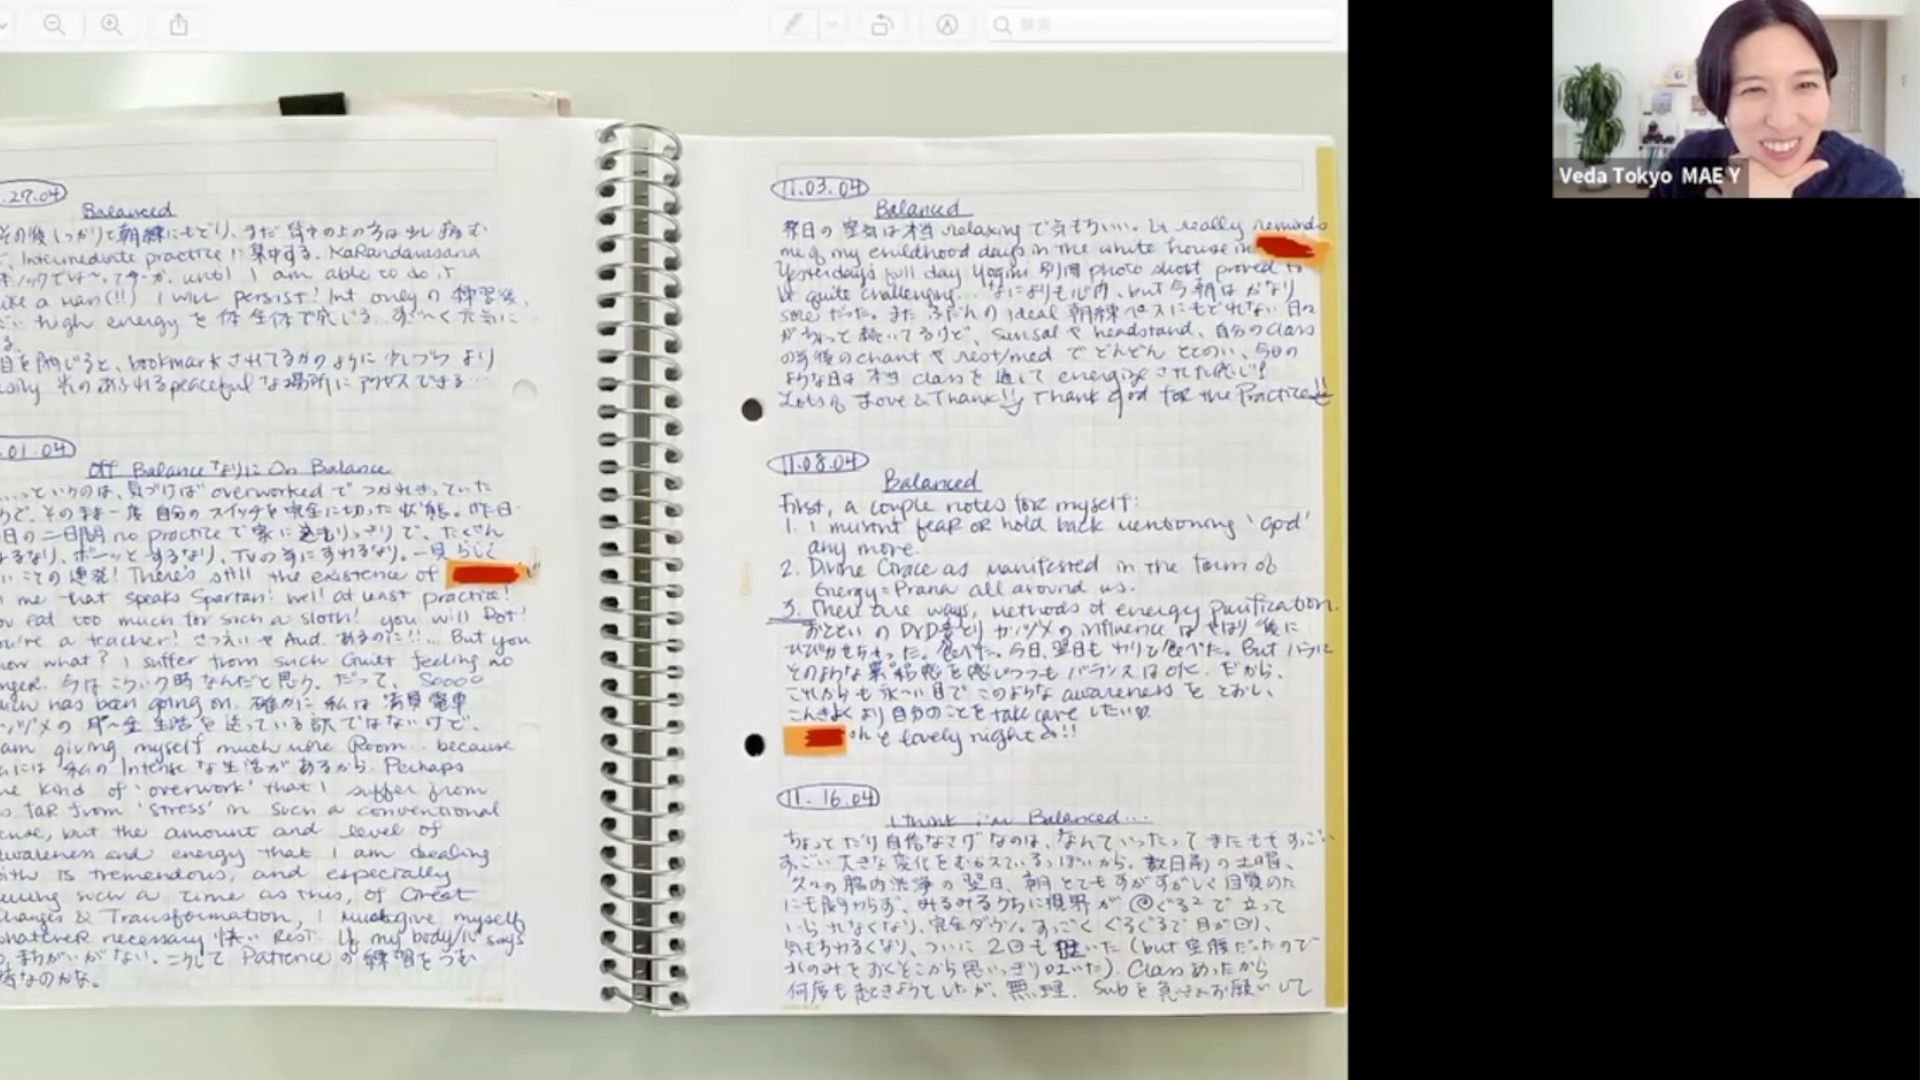 検索
Veda Tokyo MAE Y
.27.04
Balanced
その後しっかりと朝練にもどり、まだ背中の上の方は少し痛む
、Intermediate practiceに集中する。Karandavasana
until I am able to do it
like a man(!!) I will persist! Int onlyの練習後、
high energyを体全体で感じる すご〜く元気に
る。
目を閉じると、bookmarkされてるかのように少しづつより
easily 光のあふれるpeacefulな場所にアクセスできる…
.01.04
Off Balanceなりに On Balance
…というのは、気づけばoverworkedでつかれきっていた
ので、そのまま一度自分のスイッチを完全に切った状態。昨日
日の二日間no practiceで家に こもりっきりで、たくさん
るなり、ボーッとするなり、TVの前にすわるなり。一見らしく
いことの連発! There's still the existence of
me that speaks Spartan: well at least practice!
you eat too much for such a sloth! you will Rot!
you're a teacher! さつえいや Aud. あるのに!!... But you
know what? I suffer from such Guilt feeling no
longer. 今はこういう時なんだと思う。だって、Soooo
much has been going on. 確かに私は満員電車
生活を送っている訳ではないけど、
I am giving myself much more Room... because
私には私のIntenseな生活があるから。Perhaps
the kind of 'overwork' that I suffer from
is far from 'stress' in such a conventional
sense, but the amount and level of
awareness and energy that I am dealing
with is tremendous, and especially
during such a time as this, of Great
Changes & Transformation, I must give myself
whatever necessary 快い Rest. If my body/心 says
so, まちがいがない。こうして Patienceの練習をつむ
時なのかな。
11.03.04
Balanced
祭日の空気は本当relaxingで気もちいい。It really reminds
me of my childhood days in the white house in
Yesterday's full day Yogini 別冊 photo shoot proved to
be quite challenging... なによりも心内、but 今朝はかなり
soreだった。また ふだんの ideal 朝練ペースにもどれない日々
がちょっと続いてるけど、Sunsalや headstand、自分のclass
の前後のchantや rest/medでどんどん ととのい、今日の
ような日は本当classを通してenergizeされた感じ!
Lots of Love & Thank!! Thank God for the Practice!!
11.08.04
Balanced
First, a couple notes for myself:
1. I mustnt fear or hold back mentioning 'God'
any more.
2. Divine Grace as manifested in the form of
Energy=Prana all around us.
3. There are ways, methods of energy purification.
おとといのDVD音とりカンヅメのinfluenceはやはり後に
ひびかせちゃった。食べた。今日、翌日もわりと食べた。But
そのような を感じつつもバランスはOK. だから、
これからも永〜い目でこのような awarenessをとおし、
こんきよくより自分のことをtake careしたい♡
lovely night
11.16.04
I think i'm Balanced...
ちょっとだけ自信なさげなのは、なんていったってまたももすっごい
すっごい大きな変化をむかえているっぽいから。数日前の土曜、
久々の腸内洗浄の翌日、朝とてもすがすがしく目覚めた
にも関わらず、みるみるうちに視界がぐるぐるで立って
いられなくなり、完全ダウン。すっごくぐるぐるで目が回り、
気もちわるくなり、ついに2回も吐いた(but 空腹だったので
水のみでおくそこから思いっきり吐いた)。Classあったから
何度も起きようとしたが、無理。Subを急きょお願いして